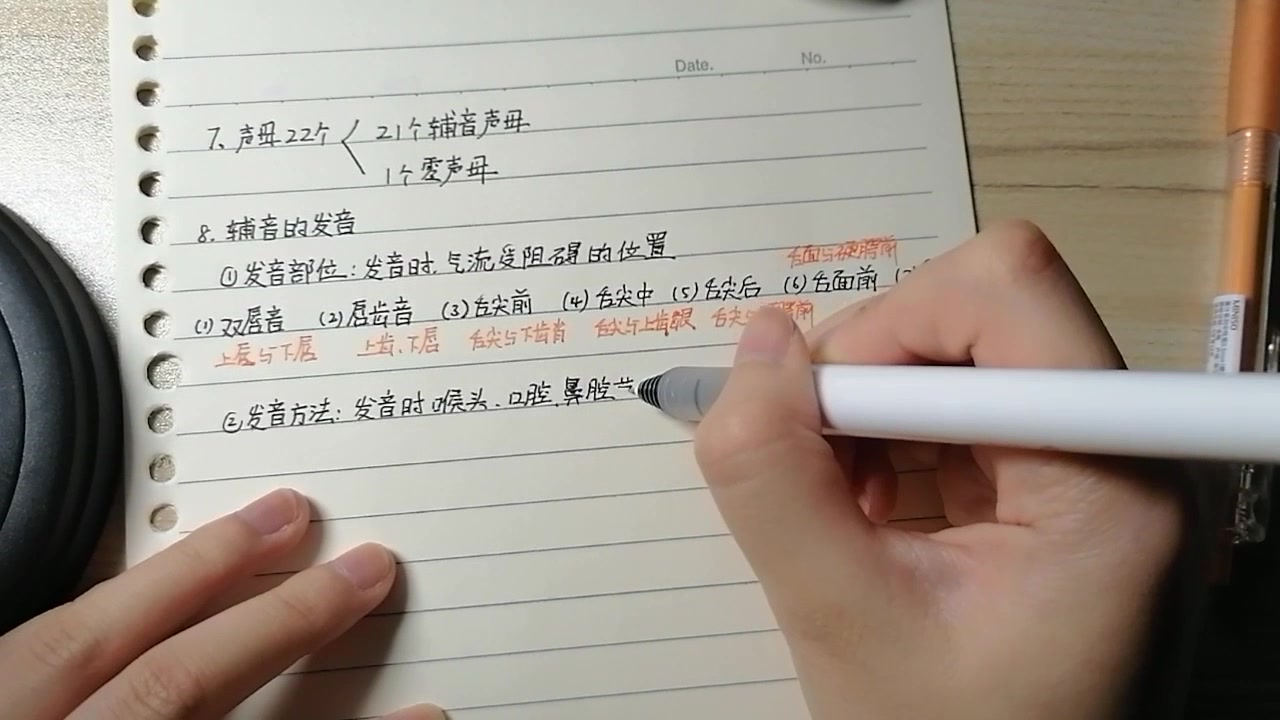 Date. No.
7、声母22个 21个辅音声母
1个零声母
8. 辅音的发音
①发音部位:发音时,气流受阻碍的位置
舌面与硬腭前
(1) 双唇音 (2) 唇齿音 (3) 舌尖前 (4) 舌尖中 (5) 舌尖后 (6) 舌面前
上唇与下唇 上齿、下唇 舌尖与下齿背 舌尖与上齿龈 舌尖 腭前
②发音方法:发音时喉头、口腔、鼻腔
MINISO